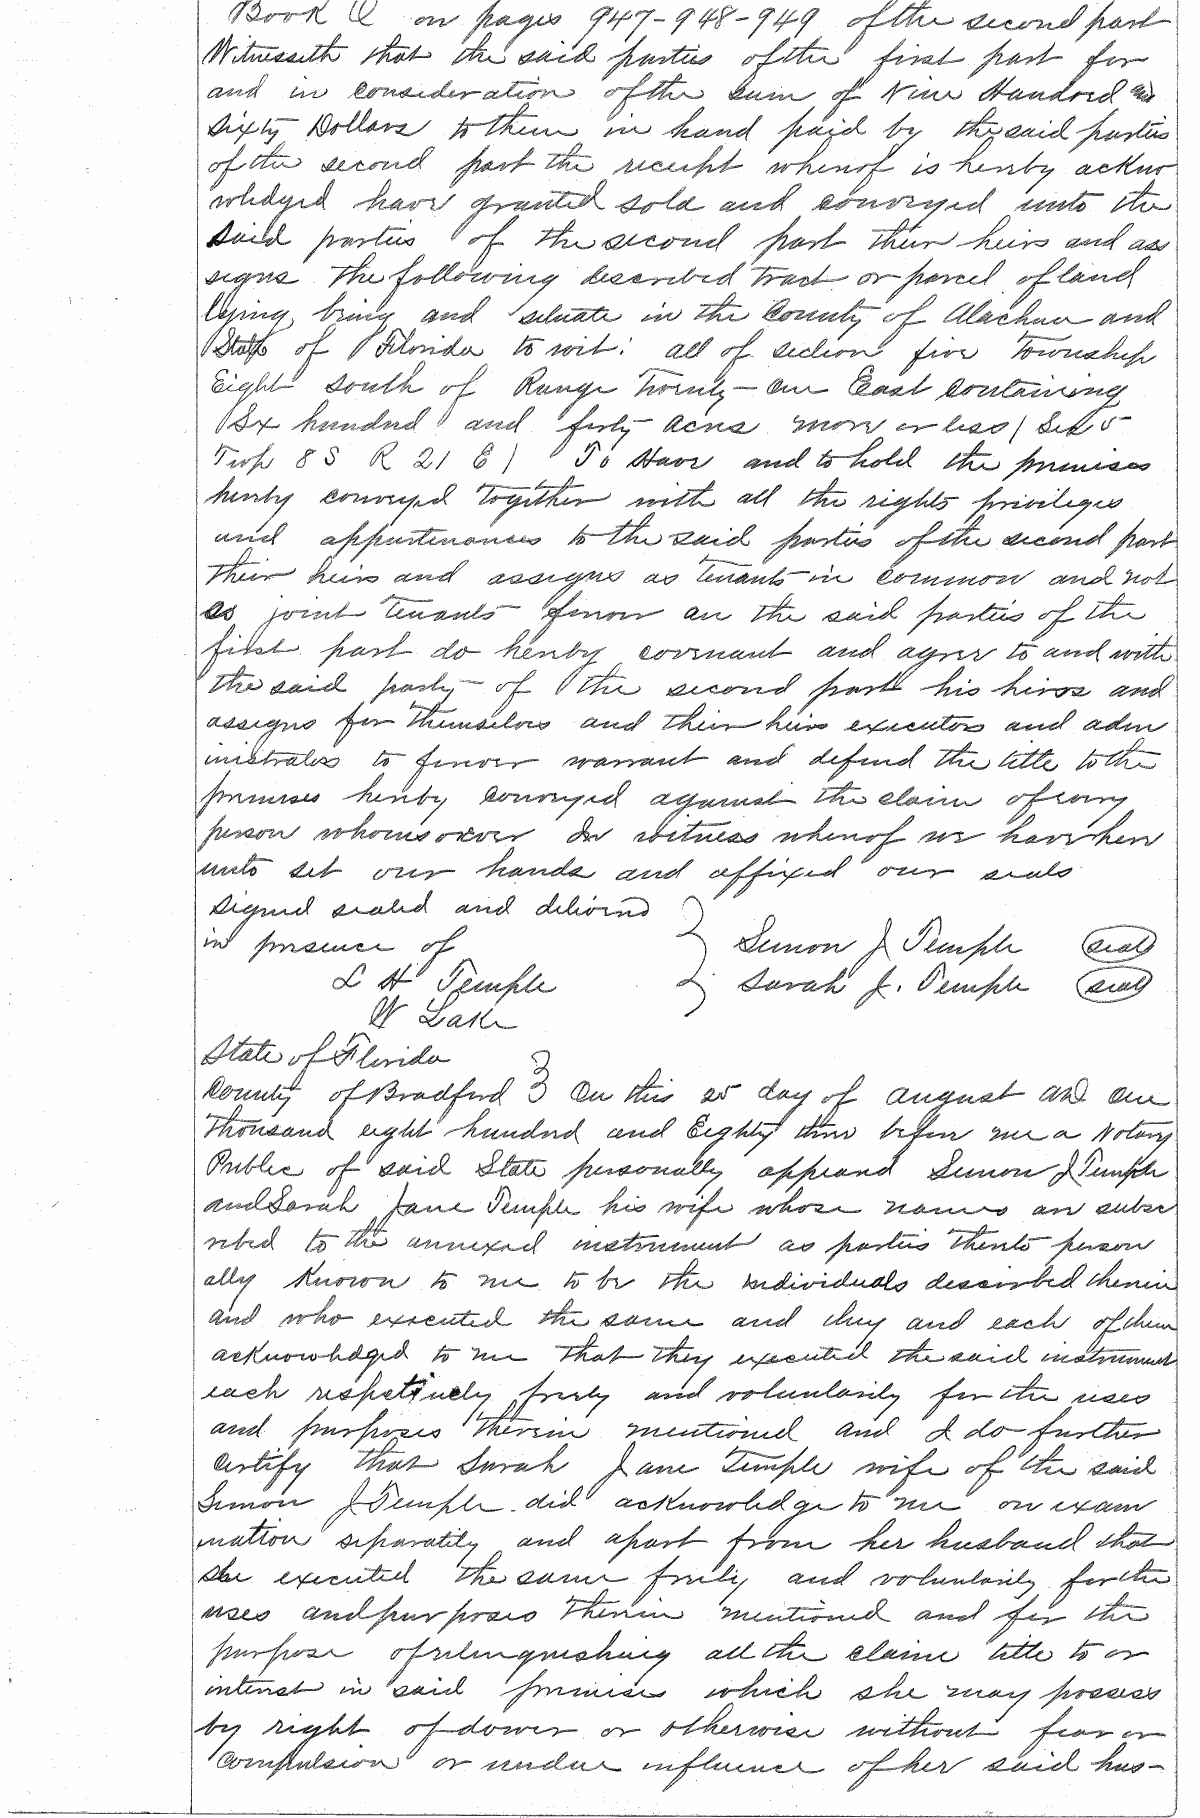 Book Q on pages 947-948-949 of the second part
Witnesseth that the said parties of the first part for
and in consideration of the sum of Nine Hundred and
Sixty Dollars to them in hand paid by the said parties
of the second part the receipt whereof is hereby ackno
wledged have granted sold and conveyed unto the
said parties of the second part their heirs and as
signs the following described tract or parcel of land
lying being and situate in the County of Alachua and
State of Florida to wit: all of section five Township
Eight south of Range Twenty-one East containing
Six hundred and forty acres more or less (Sec 5
Twp 8 S R 21 E) To Have and to hold the premises
hereby conveyed together with all the rights privileges
and appurtenances to the said parties of the second part
their heirs and assigns as tenants in common and not
as joint tenants forever and the said parties of the
first part do hereby covenant and agree to and with
the said party of the second part his heirs and
assigns for themselves and their heirs executors and adm
inistrators to forever warrant and defend the title to the
premises hereby conveyed against the claim of every
person whomsoever In witness whereof we have here
unto set our hands and affixed our seals
Signed sealed and delivered
in presence of Simon J Temple (seal)
L H Temple Sarah J. Temple (seal)
W Lake
State of Florida
County of Bradford } On this 25 day of August AD one
thousand eight hundred and Eighty three before me a Notary
Public of said State personally appeared Simon J Temple
and Sarah Jane Temple his wife whose names are subsc
ribed to the annexed instrument as parties thereto person
ally known to me to be the individuals described therein
and who executed the same and they and each of them
acknowledged to me that they executed the said instrument
each respectively freely and voluntarily for the uses
and purposes therein mentioned and I do further
certify that Sarah Jane Temple wife of the said
Simon J Temple did acknowledge to me on exam
ination separately and apart from her husband that
she executed the same freely and voluntarily for the
uses and purposes therein mentioned and for the
purpose of relinquishing all the claim title to or
interest in said premises which she may possess
by right of dower or otherwise without fear or
compulsion or undue influence of her said hus-